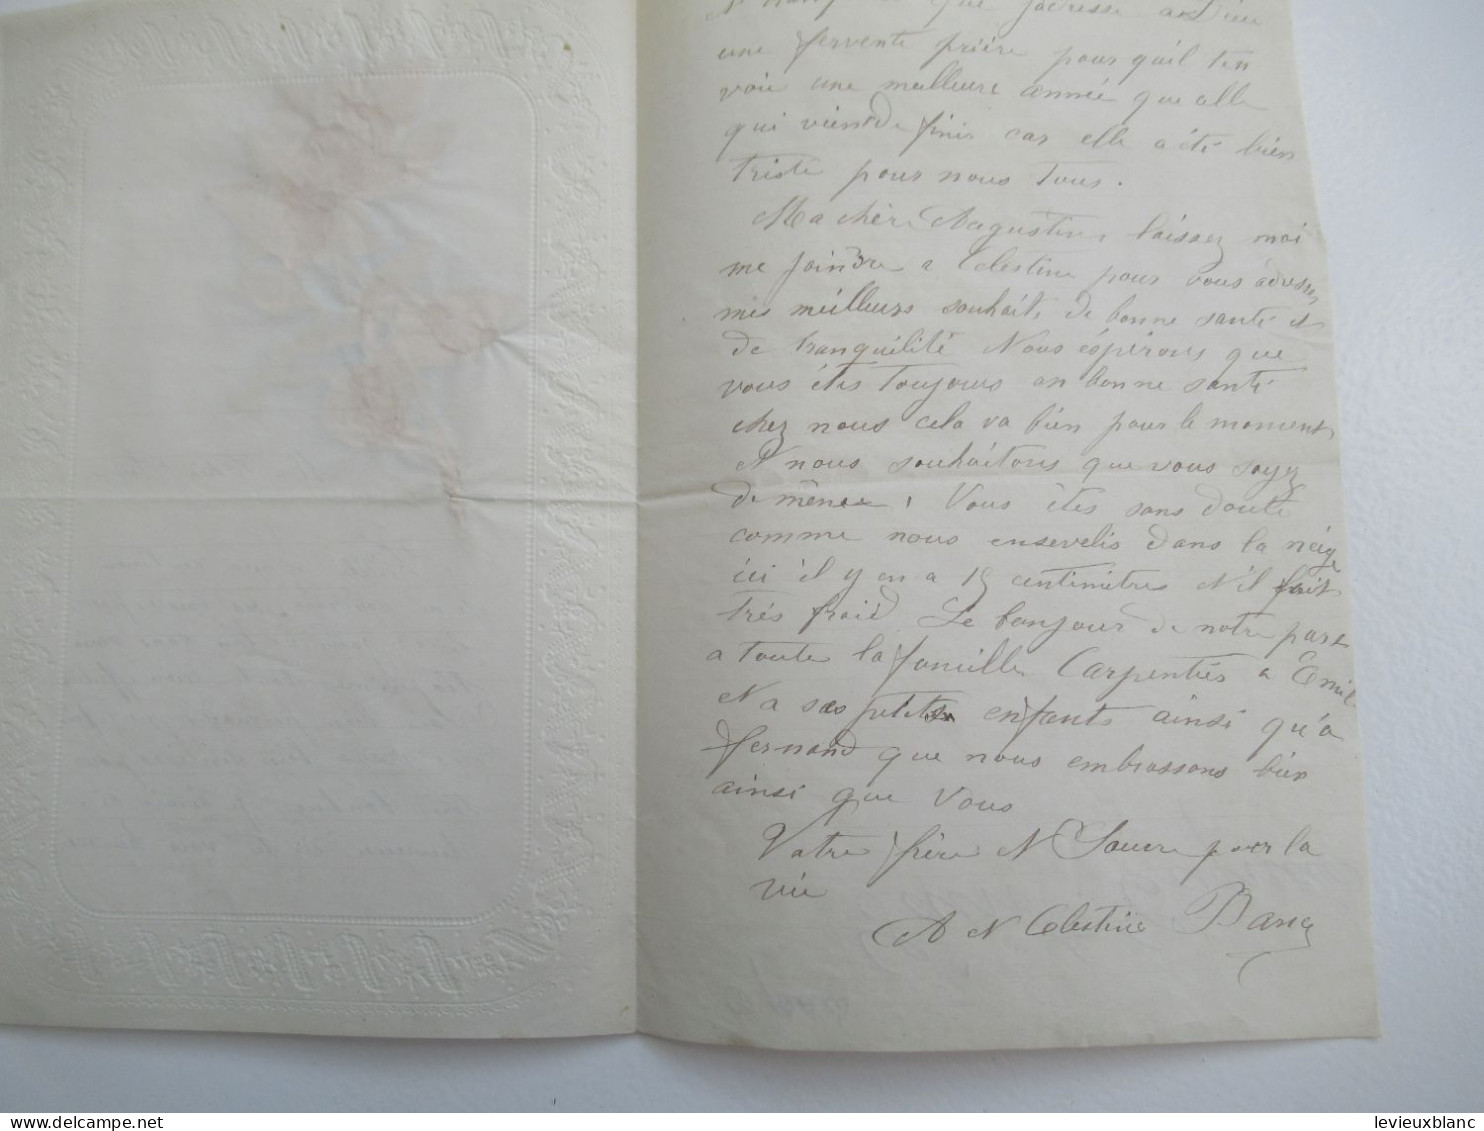 que j'adresse a Dieu
une fervente prière pour qu'il t'en
voie une meilleure année que celle
qui vient de finir car elle a été bien
triste pour nous tous.
Ma chère Augustine, laissez moi
me joindre a Celestine pour vous adresser
mes meilleurs souhaits de bonne santé et
de tranquilité Nous éspérons que
vous étes toujours en bonne santé
chez nous cela va bien pour le moment
et nous souhaitons que vous soyez
de même, Vous êtes sans doute
comme nous ensevelis dans la neige
ici il y en a 15 centimètres et il fait
trés froid Le bonjour de notre part
a toute la famille Carpentier a Emile
et a ses petits enfants ainsi qu'a
fernand que nous embrassons bien
ainsi que Vous
Votre frère et Soeur pour la
vie
A et Celestine
levieuxblanc
www.delcampe.net